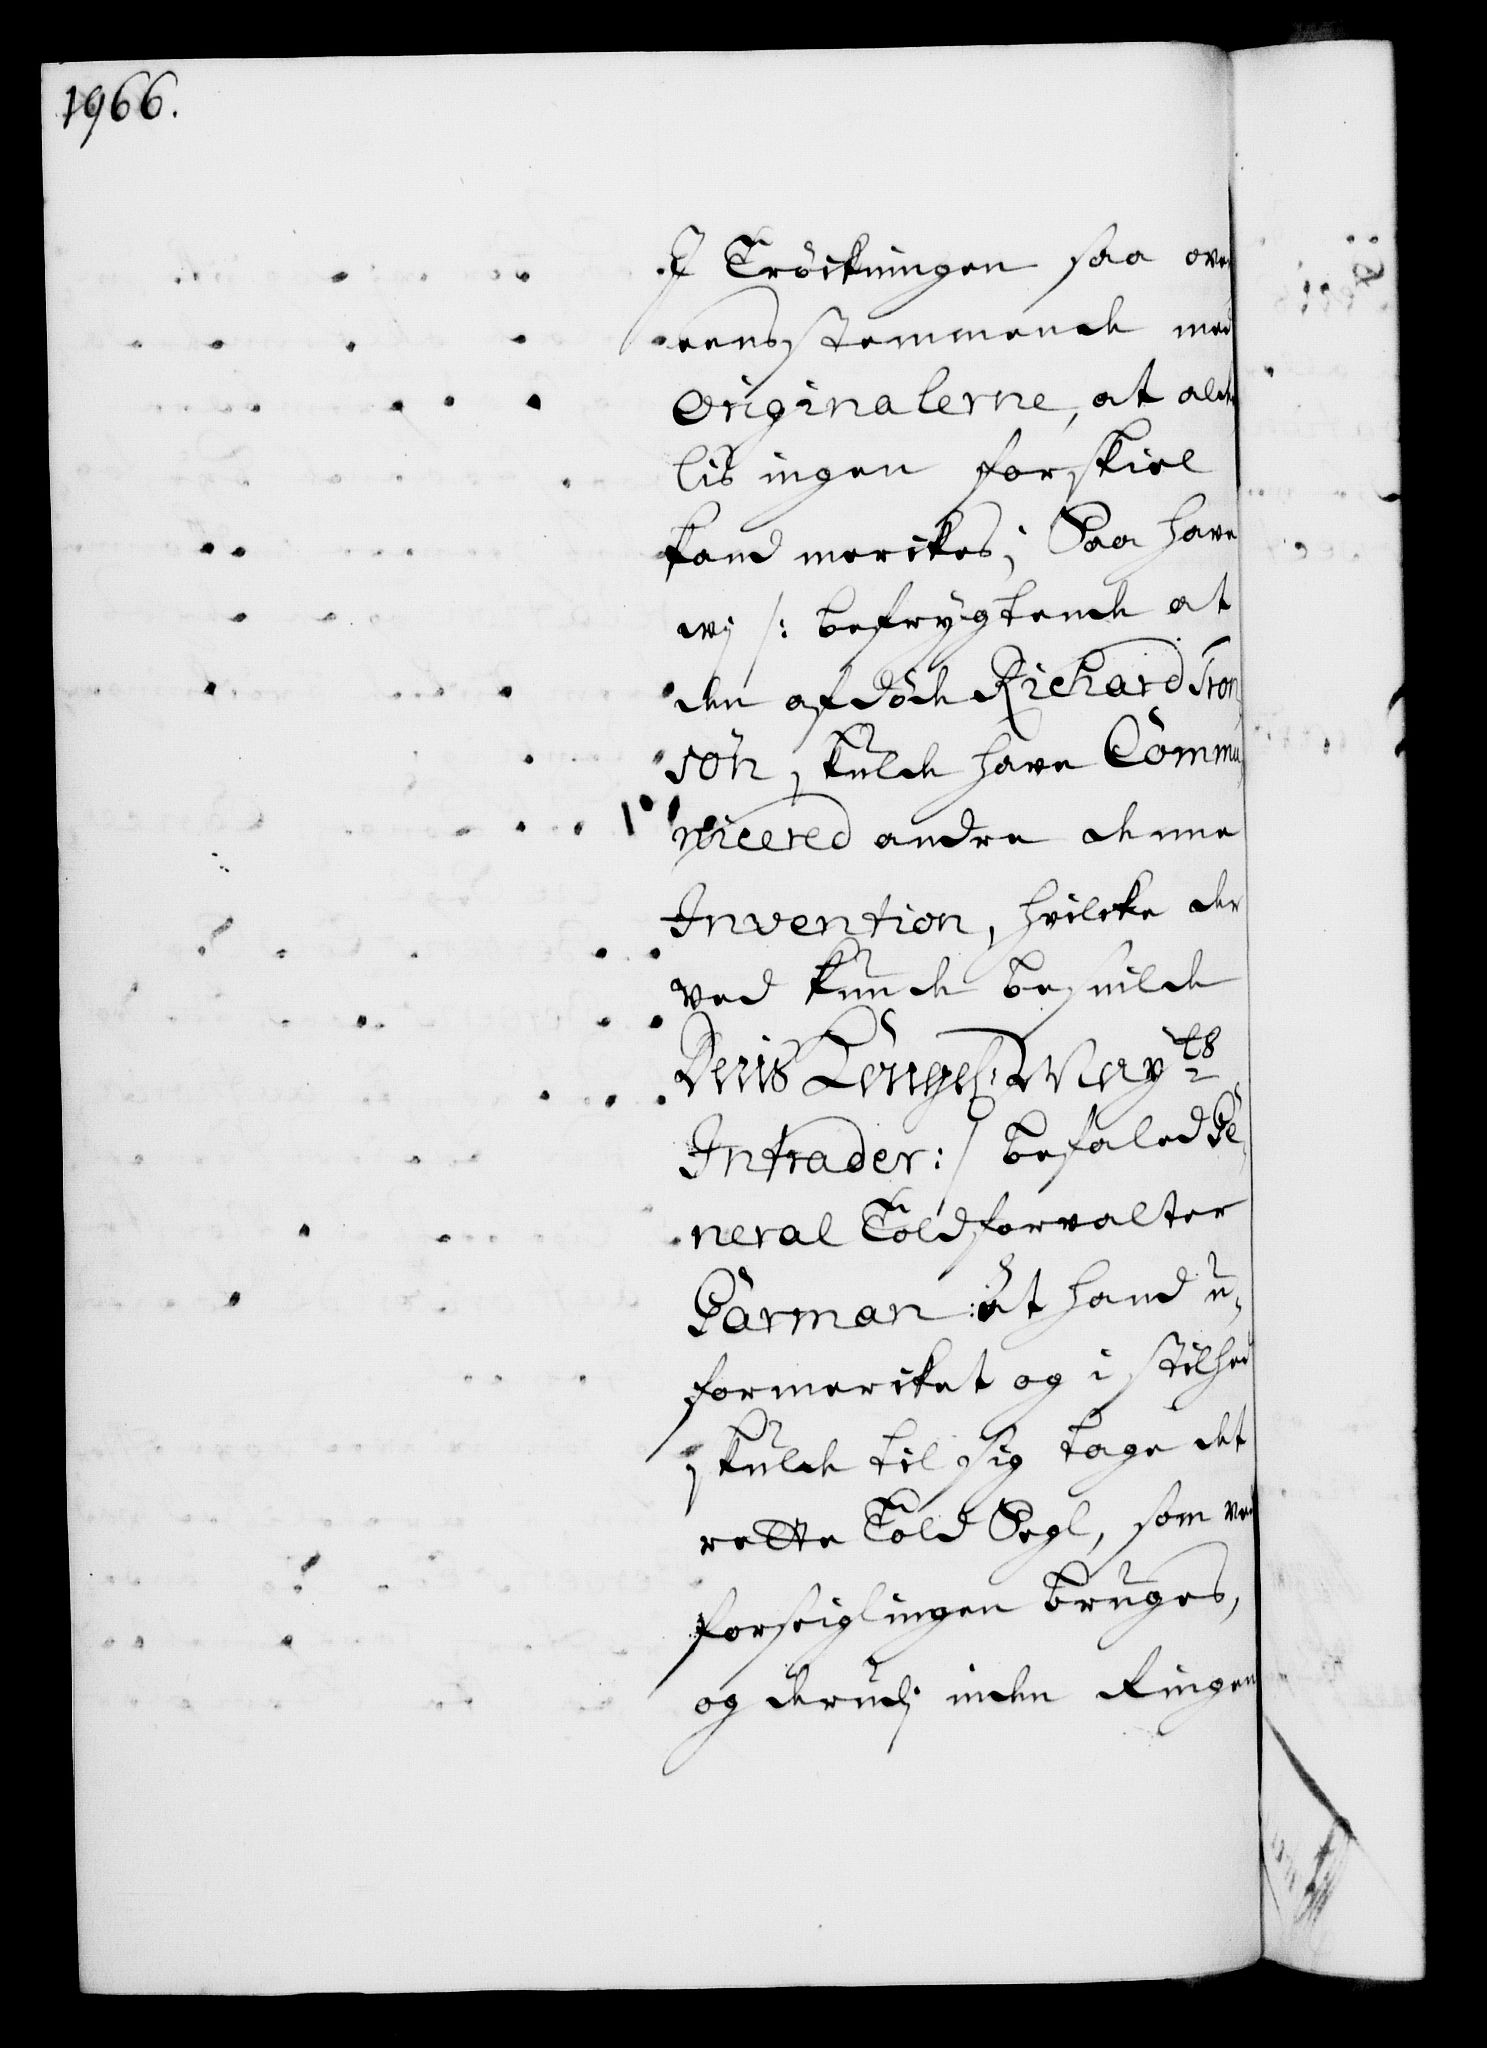 1966.
I Tröckningen saa over
eensstemmende med
Originalerne, at alde
lis ingen forskiel
kand merckes; Saa have
wj /: befrygtende at
den afdöde Richard Tron
sön, skulde have Commu,
nicered andre denne
Invention, hvilcke der
ved kunde besvilde
Deris Kongel: May ts
Intrader: / befaled Ge,
neral Toldforvalter
Garman at hand u,
formercket og i stilhed
skulde til sig tage det
rette Told Segl, som ved
forseiglingen bruges,
og derudj inden Ringen